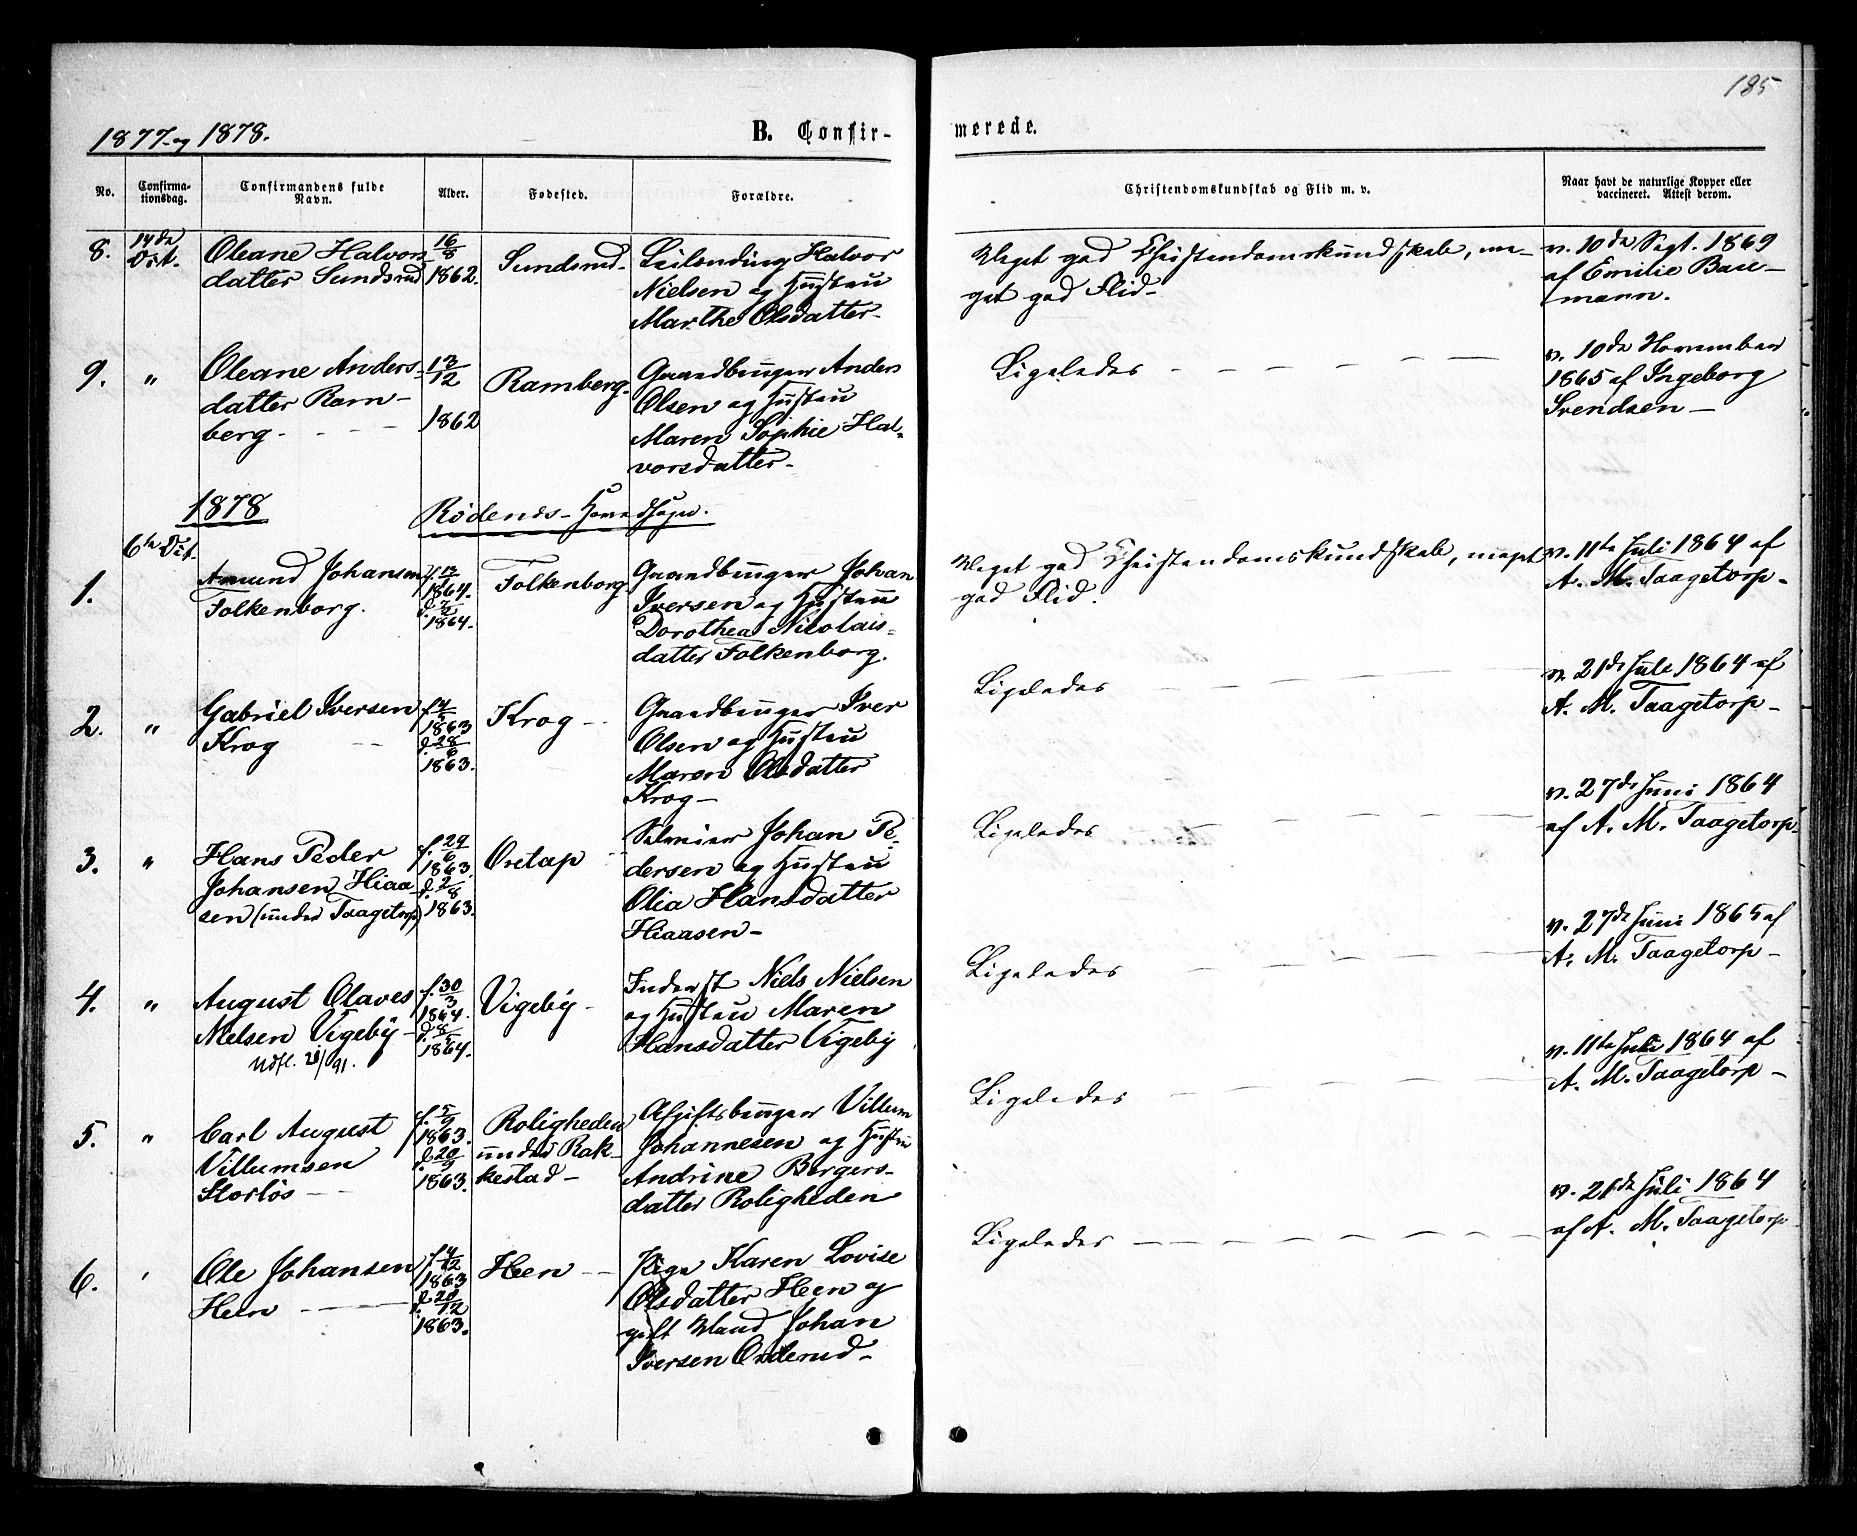 185
1877 og 1878.
B. Confir-
merede.
No.
Confirma-
tionsdag.
Confirmandens fulde
Navn.
Alder.
Fødested.
Forældre.
Christendomskundskab og Flid m. v.
Naar havt de naturlige Kopper eller
vaccineret. Attest derom.
8.
14de
Oct.
Oleane Halvors-
datter Sundsrud
16/8
1862.
Sundsrud-
Leilænding Halvor
Nielsen og Hustru
Marthe Olsdatter-
Meget god Christendomskundskab, me-
get god Flid-
v. 10de Sept. 1869
af Emilie Bau-
mann.
9.
"
Oleane Anders-
datter Ram-
berg-
13/12
1862
Ramberg-
Gaardbruger Anders
Olsen og Hustru
Maren Sophie Hal-
vorsdatter-
Ligeledes
v. 10de November
1865 af Ingeborg
Svendsen-
1878
Rødenæs-Hovedsogn.
6te Oct.
1.
Amund Johansen
Folkenborg.
1864.
1864.
Folkenborg
Gaardbruger Johan
Iversen og Hustru
Dorothea Nicolais-
datter Folkenborg.
Meget god Christendomskundskab, meget
god Flid.
v. 11te Juli 1864 af
A. M. Taagetorp-
2.
"
Gabriel Iversen
Krog
1863
d. 28/6
1863.
Krog-
Gaardbruger Iver
Olsen og Hustru
Maren Olsdatter
Krog-
Ligeledes
v. 21de Juli 1864 af
A. M. Taagetorp-
3.
"
Hans Peder
Johansen Hiaa-
sen (under Taagetorp)
f. 29/6
1863.
d. 2/8
1863.
Ovetap
Selveier Johan Pe-
dersen og Hustru
Olia Hansdatter
Hiaasen-
Ligeledes
v. 27de Juni 1864
af A. M. Taagetorp-
4.
"
August Olaves
Nielsen Vigeby-
Udfl. 28/91.
f. 30/3
1864.
1864.
Vigeby-
Inderst Niels Nielsen
og Hustru Maren
Hansdatter Vigeby
Ligeledes
v. 27de Juni 1865 af
A. M. Taagetorp-
5.
"
Carl August
Villumsen
Storløs-
f. 5/9
1863.
d. 20/9
1863.
Roligheden
under Rak-
kestad-
Afgiftsbruger Villum
Johannesen og Hustru
Andrine Borgers-
datter Roligheden
Ligeledes
v. 11te Juli 1864 af
A. M. Taagetorp-
6.
Ole Johansen
Heen
f. 4/12
1863
d. 20/12
1863.
Heen
Pige Karen Lovise
Olsdatter Heen og
gift Mand Johan
Iversen Orderud-
Ligeledes
v. 21de Juli 1864
af A. M. Taagetorp-